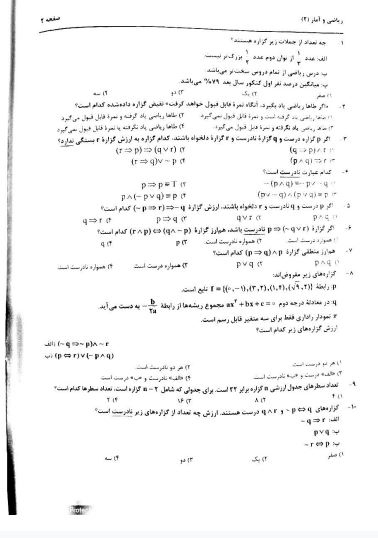 ریاضی و آمار (۲)
صفحه ۲
۱- چه تعداد از جملات زیر گزاره هستند؟
الف: عدد ۱/۳ از توان دوم عدد ۱/۲ بزرگ‌تر نیست.
ب: درس ریاضی از تمام دروس سخت‌تر می‌باشد.
پ: میانگین درصد نفر اول کنکور سال بعد ۷۹٪ می‌باشد.
۱) صفر ۲) یک ۳) دو ۴) سه
۲- «اگر طاها ریاضی یاد بگیرد، آنگاه نمرهٔ قابل قبول خواهد گرفت» نقیض گزاره داده‌شده کدام است؟
۱) طاها ریاضی یاد گرفته است و نمرهٔ قابل قبول نمی‌گیرد.
۳) طاها ریاضی یاد نگرفته و نمرهٔ قابل قبول نمی‌گیرد.
۴) طاها ریاضی یاد نگرفته یا نمرهٔ قابل قبول نمی‌گیرد.
۳- اگر p گزاره درست و q گزارهٔ نادرست و r گزارهٔ دلخواه باشند، کدام گزاره به ارزش گزارهٔ r بستگی ندارد؟
۲) (r ⇒ p) ⇒ (q ∨ r)
۳) r ⇒ (p ∧ q)
۴) (r ⇒ q) ∨ ~ p
۴- کدام عبارت نادرست است؟
۲) p ⇒ p ≡ T
۴) p ∧ (~ p ∨ q) ≡ p
۵- اگر p درست و q نادرست و r دلخواه باشند، ارزش گزارهٔ (p ⇒ r) ⇔ ~ q کدام است؟
۱) p ∧ q ۲) q ∨ r ۳) p ⇒ q ۴) q ⇒ r
۶- اگر گزارهٔ p ⇒ (~ q ∨ r) نادرست باشد، هم‌ارز گزارهٔ (r ∧ p) ⇔ (q ∧ ~ p) کدام است؟
۱) همواره درست است. ۲) همواره نادرست است. ۳) p ۴) q
۷- هم‌ارز منطقی گزارهٔ (p ⇒ q) ∧ p کدام است؟
۱) p ∧ q ۲) p ∨ q ۳) همواره درست است ۴) همواره نادرست است
۸- گزاره‌های زیر مفروض‌اند:
p: رابطهٔ f = {(۰,−۱),(۳,۲),(۱,۲),(√۹,۲)} تابع است.
q: در معادلهٔ درجه دوم ax² + bx + c = ۰ مجموع ریشه‌ها از رابطهٔ −b/۲a به دست می‌آید.
r: نمودار راداری فقط برای سه متغیر قابل رسم است.
ارزش گزاره‌های زیر کدام است؟
الف) (~ q ⇒ ~ p) ∧ ~ r
ب) (p ⇔ r) ∨ (~ p ∧ q)
۱) هر دو درست است.
۲) هر دو نادرست است.
۳) «الف» درست و «ب» نادرست است.
۴) «الف» نادرست و «ب» درست است.
۹- تعداد سطرهای جدول ارزشی n گزاره برابر ۳۲ است. برای جدولی که شامل n − ۲ گزاره است، تعداد سطرها کدام است؟
۱) ۴ ۲) ۸ ۳) ۱۶ ۴) ۲
۱۰- گزاره‌های ~ p ⇔ q و q ∧ r درست هستند. ارزش چه تعداد از گزاره‌های زیر نادرست است؟
الف: ~ q ⇒ r
ب: p ∨ q
پ: ~ r ⇔ p
۱) صفر ۲) یک ۳) دو ۴) سه